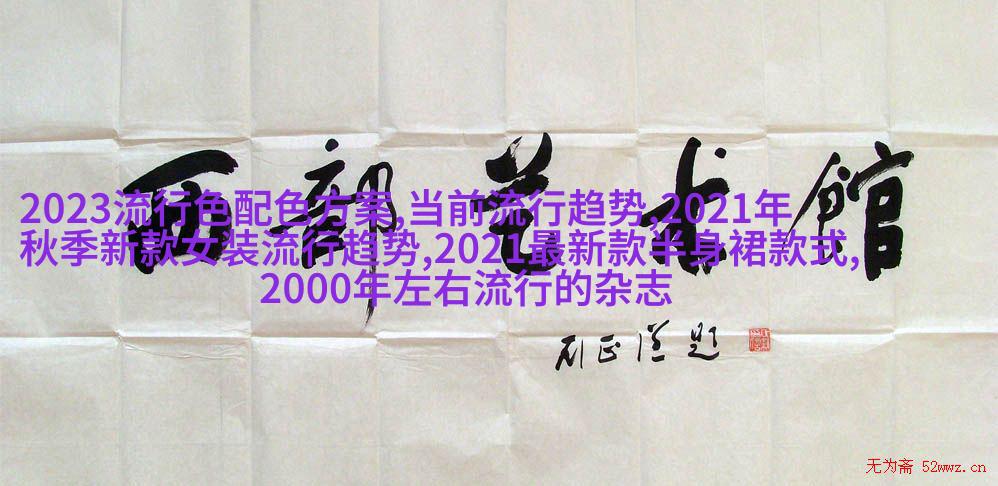 西部艺术館
2023流行色配色方案,当前流行趋势,2021年
秋季新款女装流行趋势,2021最新款半身裙款式,
2000年左右流行的杂志
石正道题
无为斋 52wwz.cn